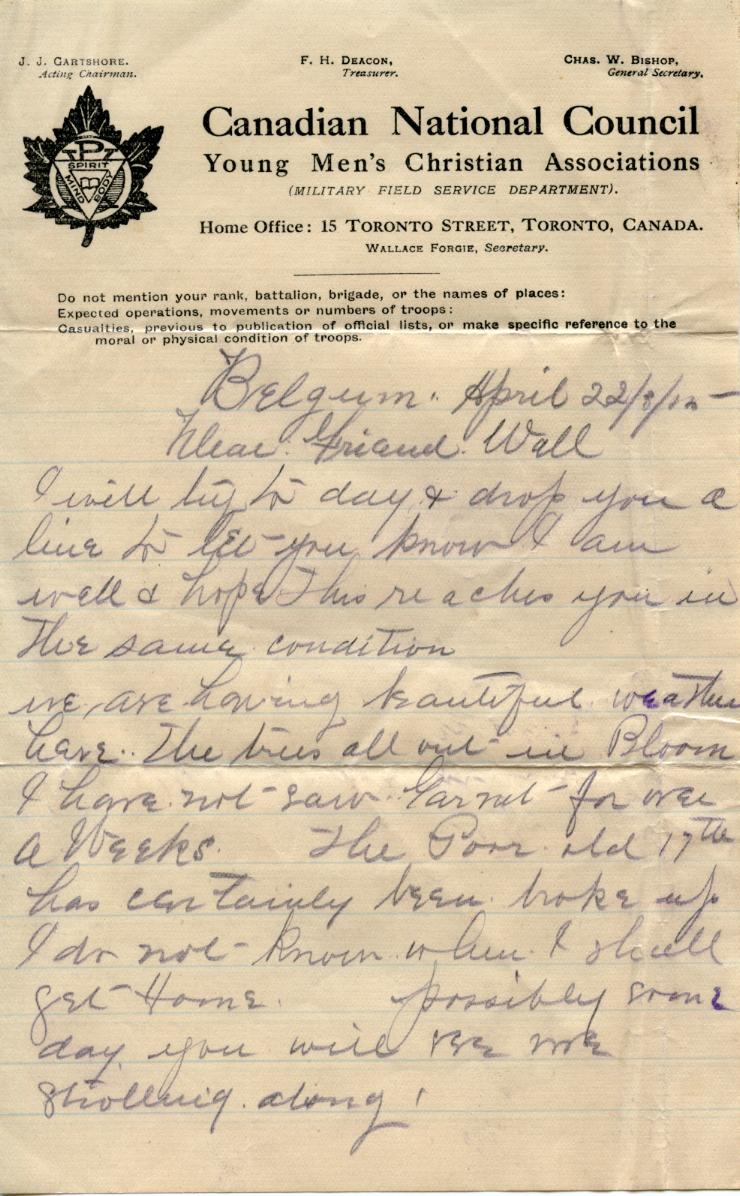 J. J. GARTSHORE.
Acting Chairman.
F. H. DEACON,
Treasurer.
CHAS. W. BISHOP,
General Secretary.
SPIRIT
MIND
BODY
Canadian National Council
Young Men's Christian Associations
(MILITARY FIELD SERVICE DEPARTMENT).
Home Office: 15 TORONTO STREET, TORONTO, CANADA.
WALLACE FORGIE, Secretary.
Do not mention your rank, battalion, brigade, or the names of places:
Expected operations, movements or numbers of troops:
Casualties, previous to publication of official lists, or make specific reference to the
moral or physical condition of troops.
Belgum. April 22
Dear. Friend. Wall
I will try to day & drop you a
line to let you know I am
well & hope this reaches you in
the same condition
we, are having beautiful weather
here.. The trees all out in Bloom
I have not saw Garnet for over
a Weeks. The Poor old 17th
has certainly been broke up
I do not know when I shall
get Home. possibly some
day you will see me
strolling along!